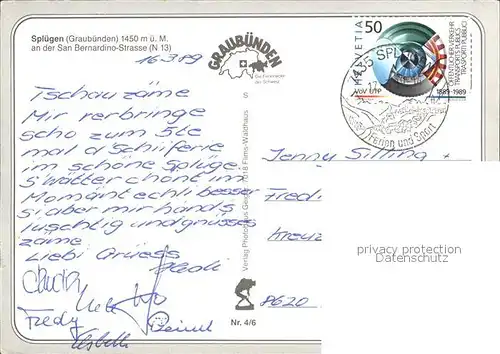 Splügen (Graubünden) 1450 m ü. M.
an der San Bernardino-Strasse (N 13)
16.3.89
Tschau zäme
Mir verbringe
scho zum 5te
mal d'Schiiferie
im schöne Splüge.
S'Wätter chönt im
Momänt echli besser
si aber mir händs
luschtig und gnüsses
zäme
Liebi Grüess
Fredy
GRAUBÜNDEN
Die Ferienecke
der Schweiz
S
Verlag Photohaus Geiger, 7018 Flims-Waldhaus
Nr. 4/6
HELVETIA
50
VöV UTP
1889-1989
ÖFFENTLICHER VERKEHR
TRANSPORTS PUBLICS
TRASPORTI PUBBLICI
SPLÜGEN
Ferien und Sport
Jenny
Fredi
Kreuz
8620
privacy protection
Datenschutz